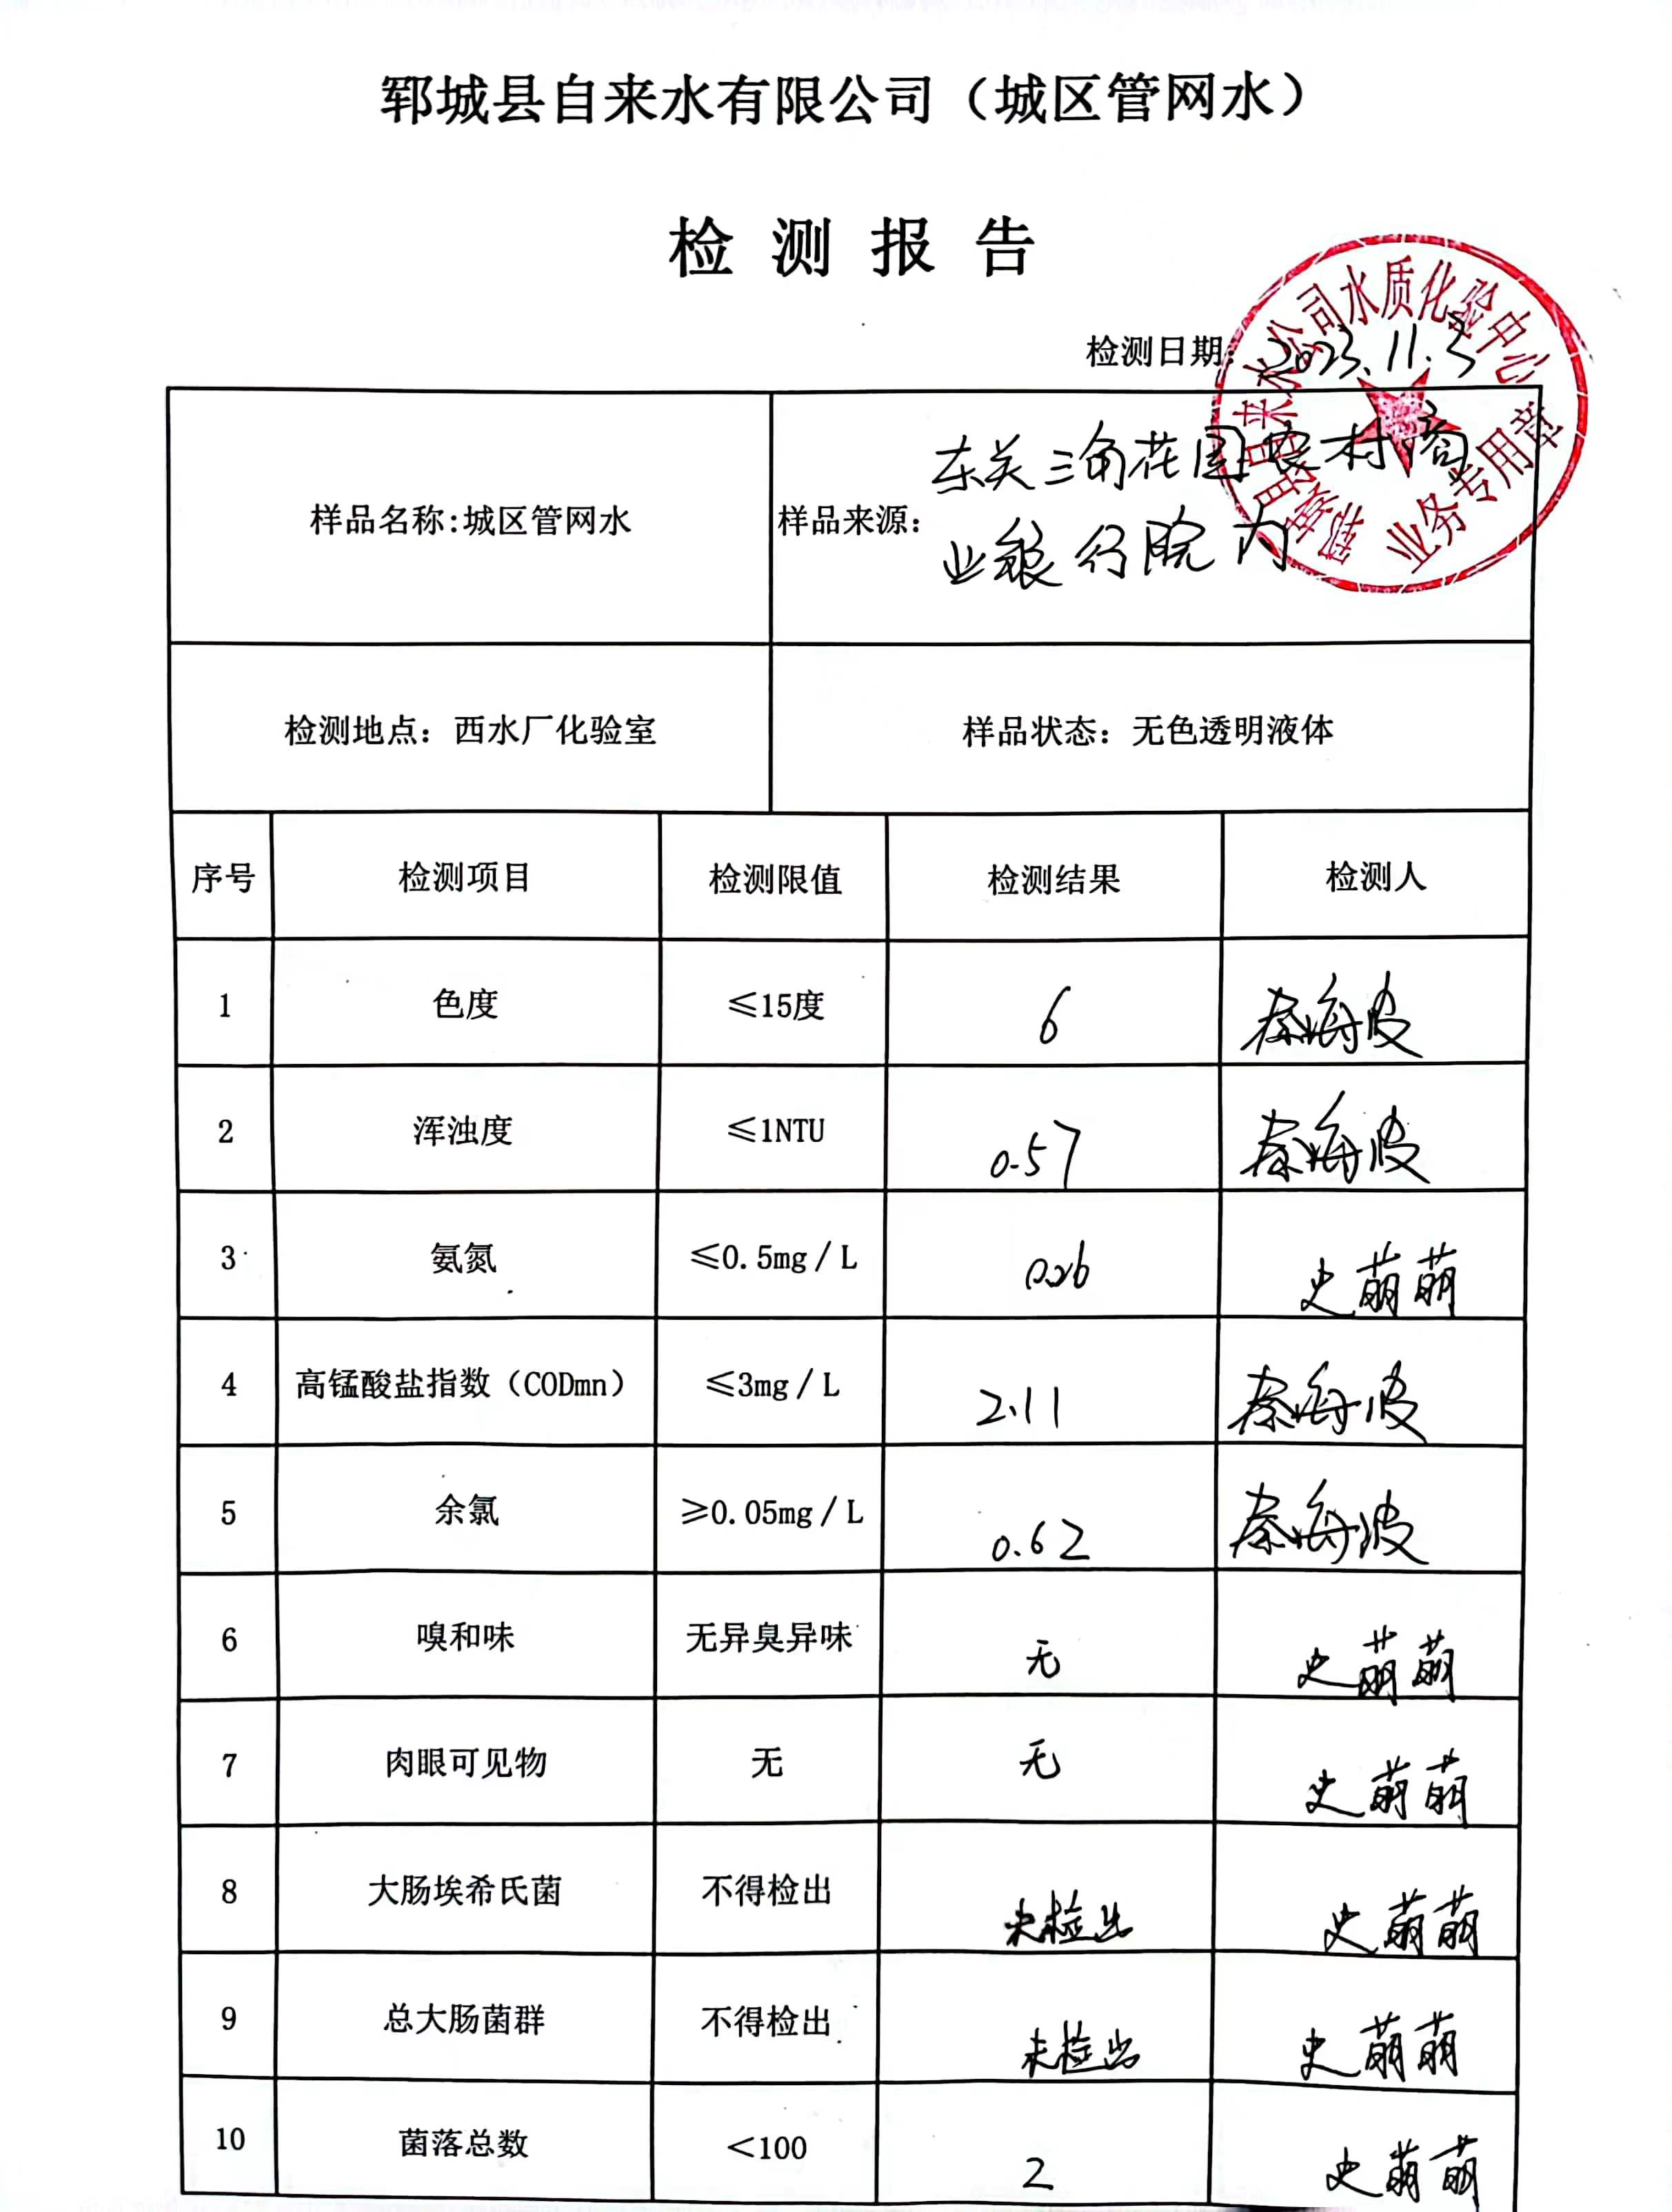 郓城县自来水有限公司（城区管网水）
检测报告
检测日期：2023.11.3
郓城县自来水公司水质化验中心
业务专用章
样品名称:城区管网水
样品来源：东关三角花园农村商
业银行院内
检测地点：西水厂化验室 样品状态：无色透明液体
序号 检测项目 检测限值 检测结果 检测人
1 色度 ≤15度 6 秦海波
2 浑浊度 ≤1NTU 0.57 秦海波
3 氨氮 ≤0.5mg/L 0.26 史萌萌
4 高锰酸盐指数（CODmn） ≤3mg/L 2.11 秦海波
5 余氯 ≥0.05mg/L 0.62 秦海波
6 嗅和味 无异臭异味 无 史萌萌
7 肉眼可见物 无 无 史萌萌
8 大肠埃希氏菌 不得检出 未检出 史萌萌
9 总大肠菌群 不得检出 未检出 史萌萌
10 菌落总数 <100 2 史萌萌